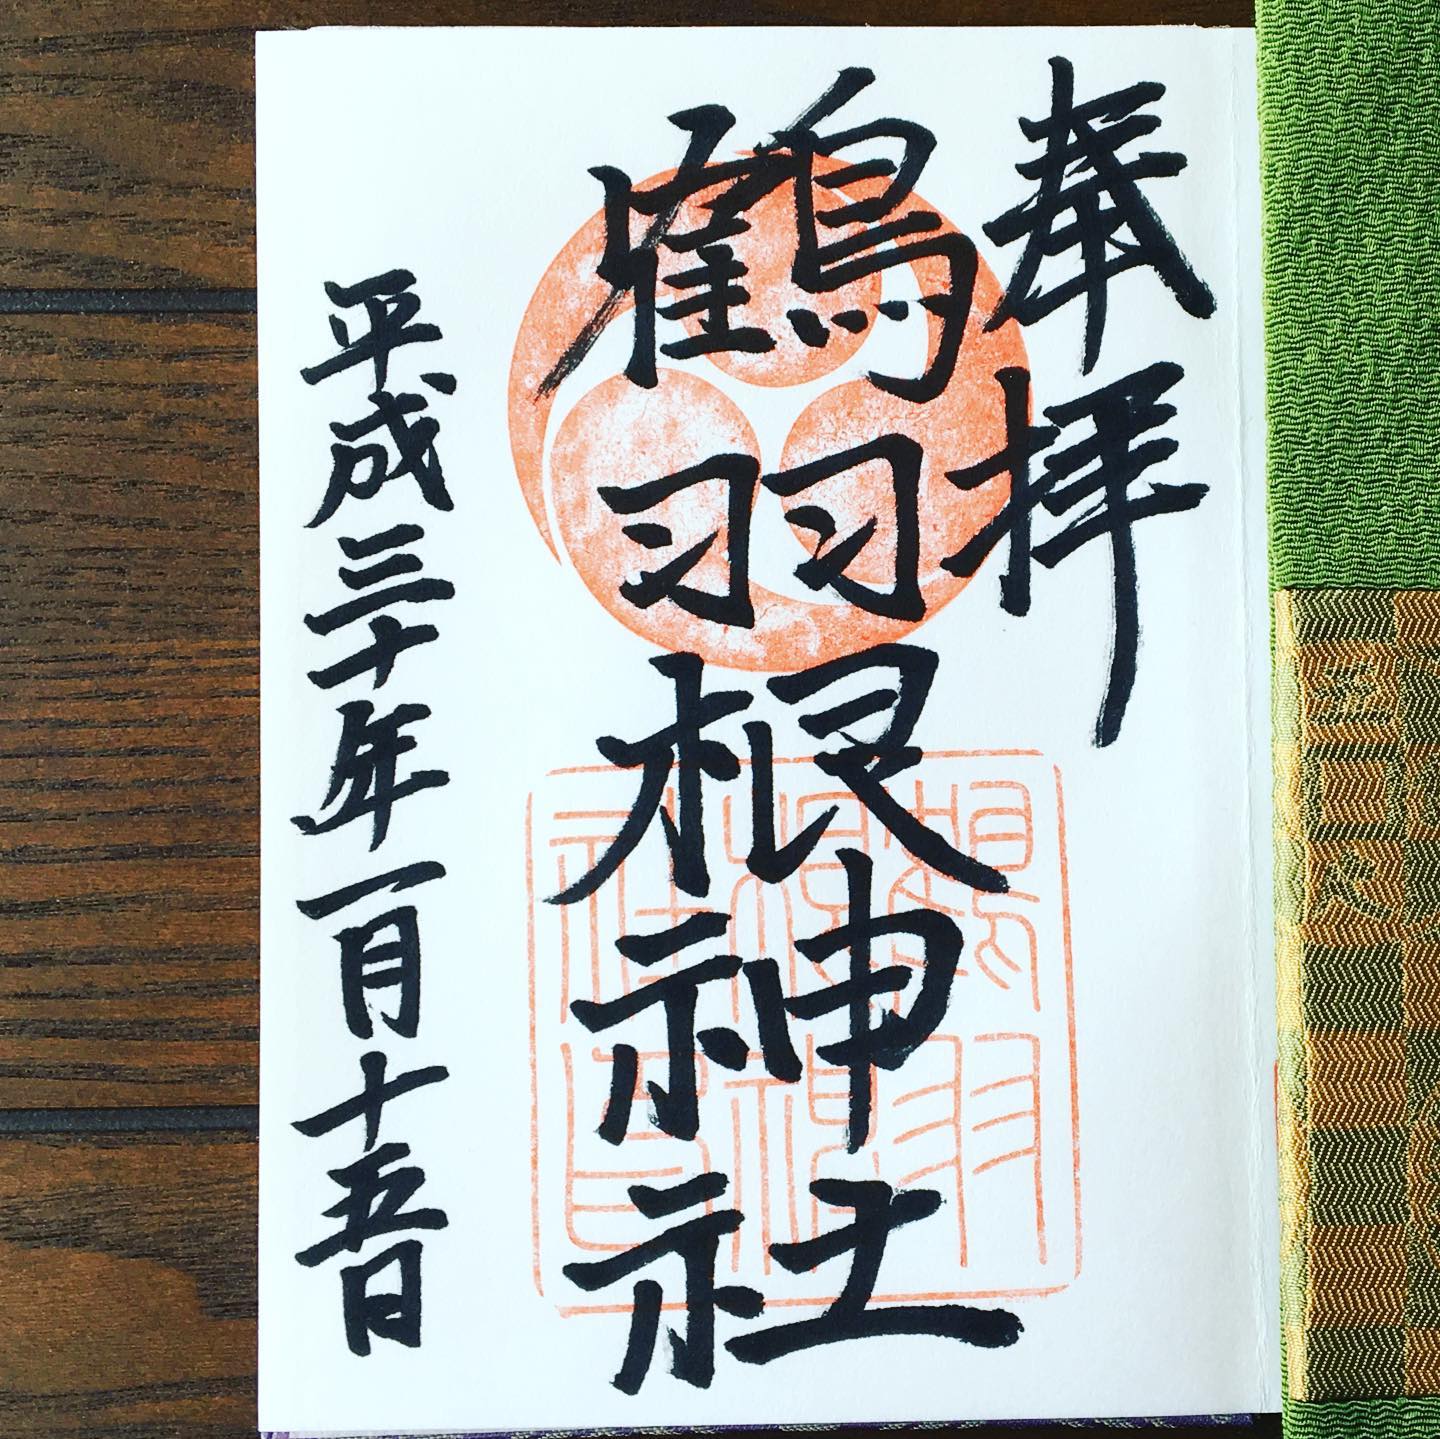 奉拝
鶴羽根神社
平成三十年一月十五日